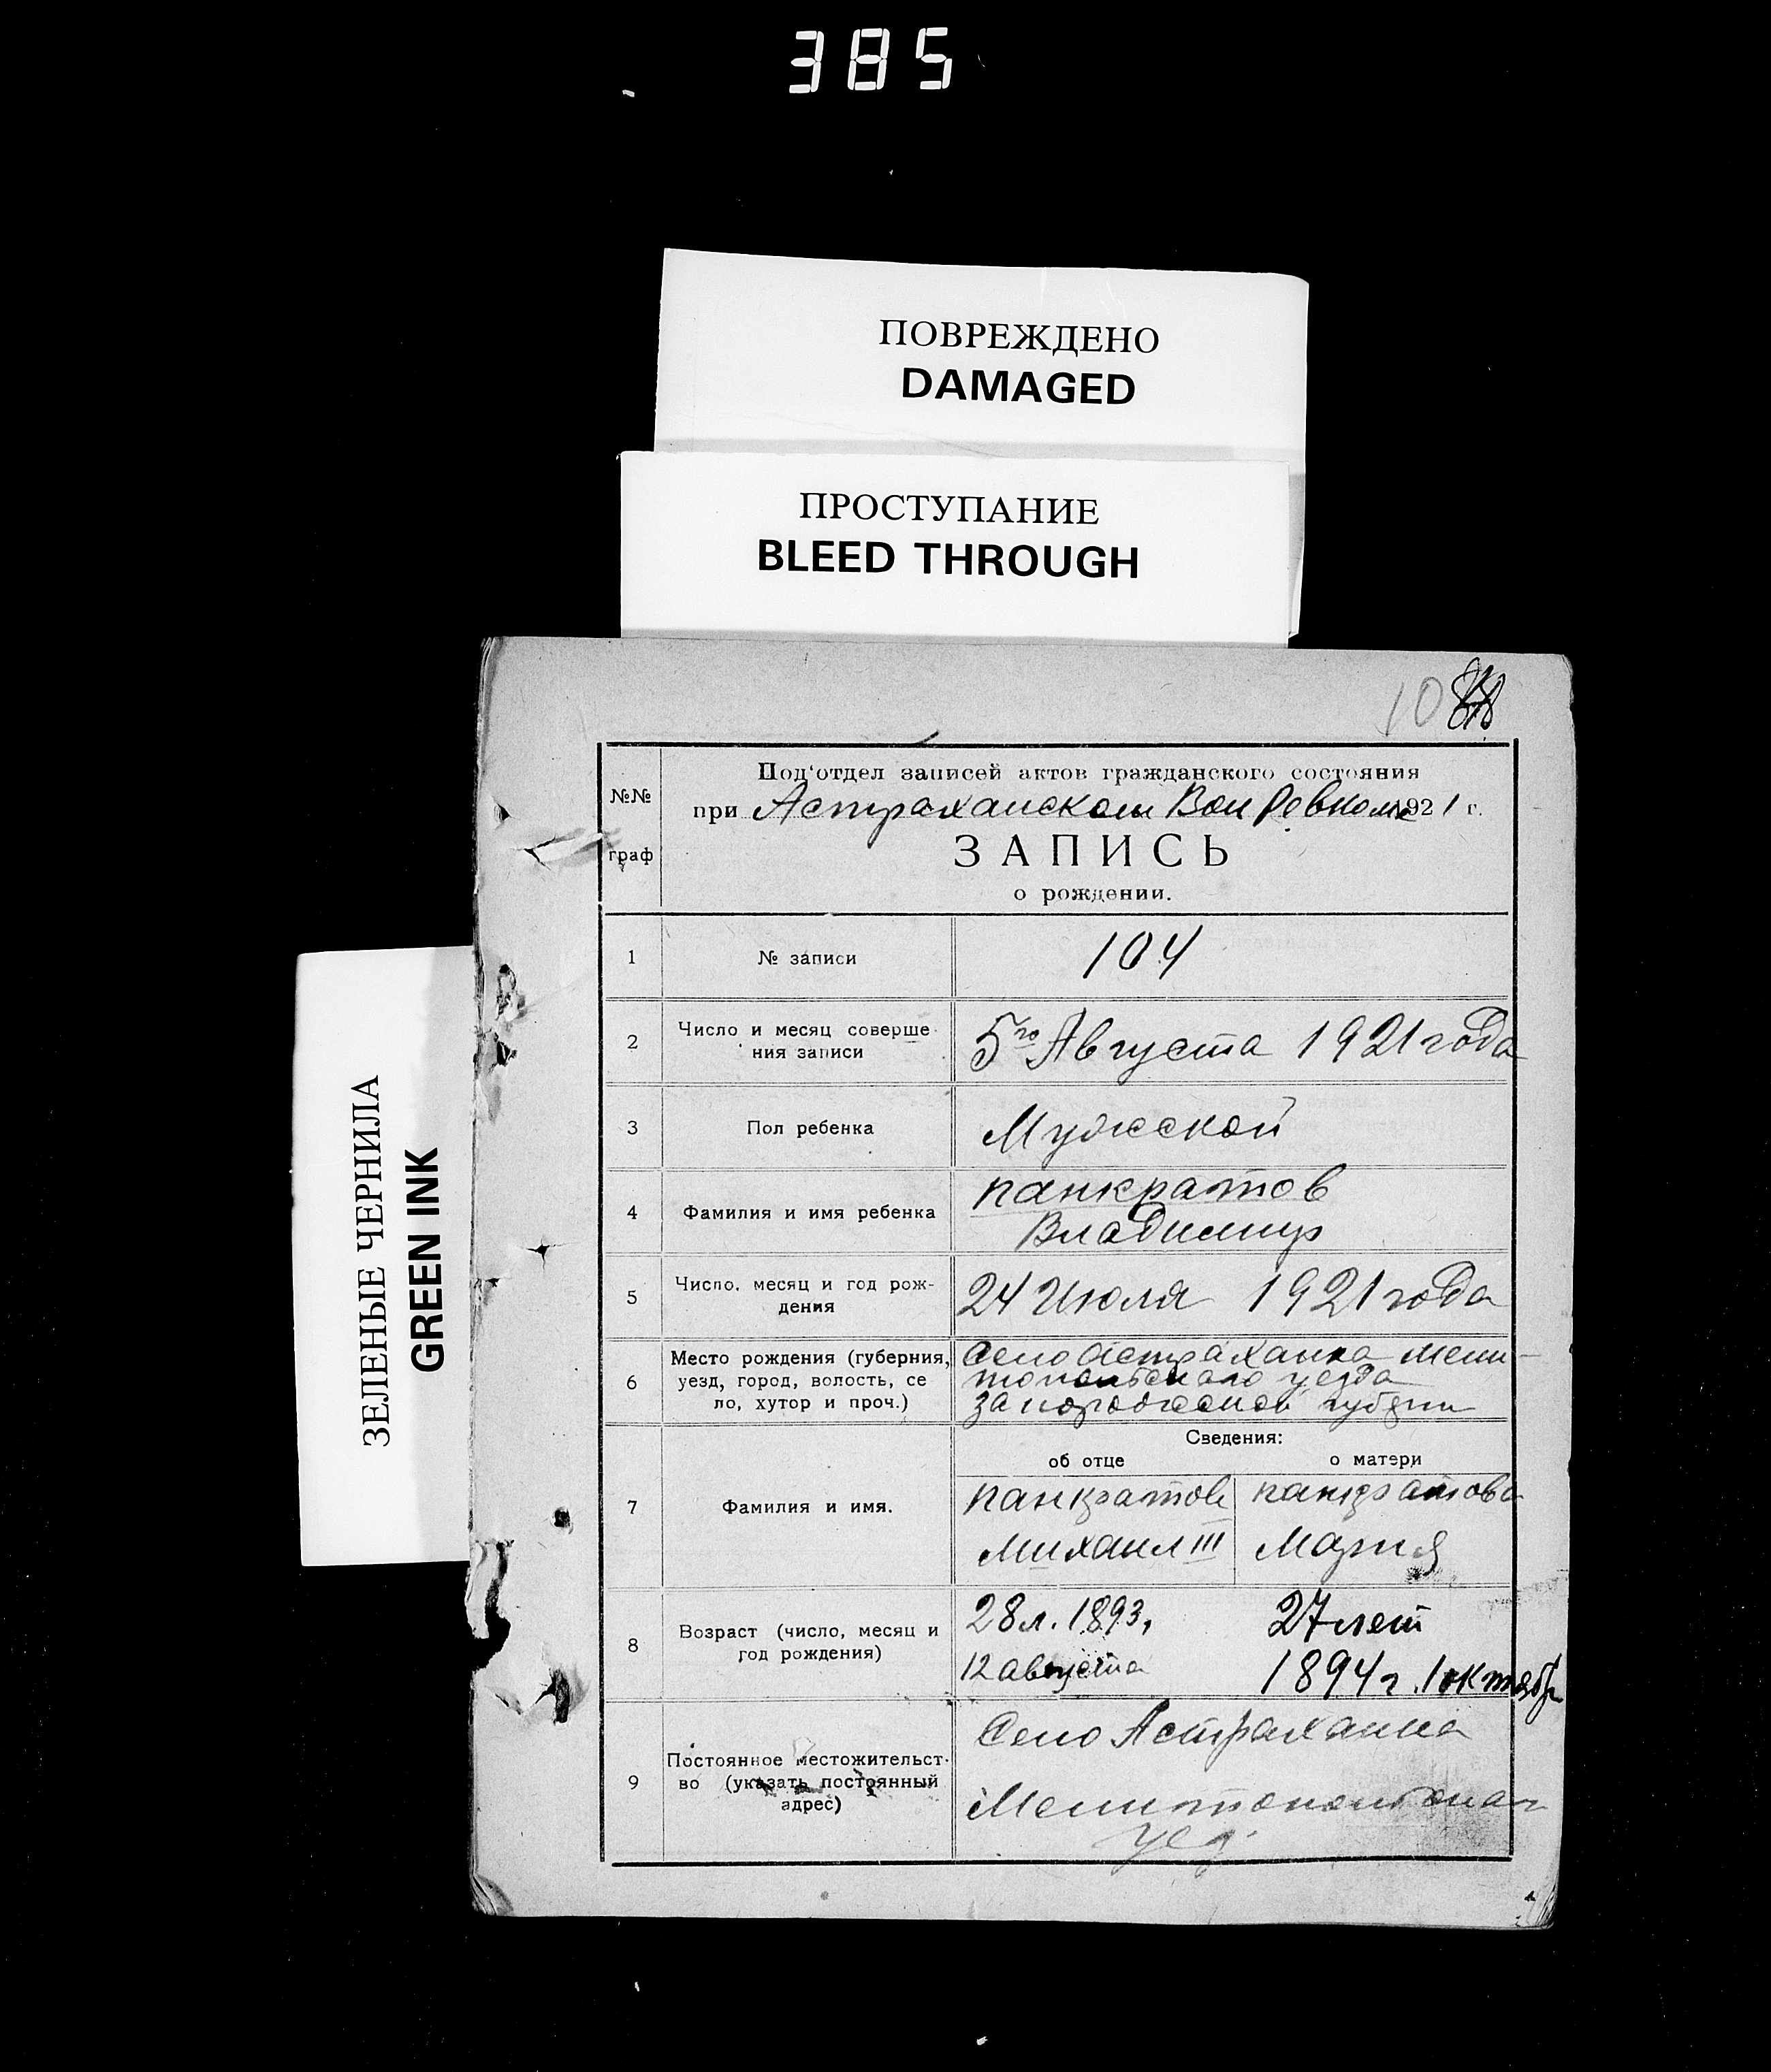 385
ПОВРЕЖДЕНО
DAMAGED
ПРОСТУПАНИЕ
BLEED THROUGH
ЗЕЛЕНЫЕ ЧЕРНИЛА
GREEN INK
10
№№
граф
Под‘отдел записей актов гражданского состояния
при Астраханском Вол Ревкоме 1921 г.
ЗАПИСЬ
о рождении.
1 № записи 104
2 Число и месяц соверше
ния записи
5го Августа 1921 года
3 Пол ребенка Мужской
4 Фамилия и имя ребенка
Панкратов
Владимир
5 Число, месяц и год рож-
дения
24 Июля 1921 года
6 Место рождения (губерния,
уезд, город, волость, се
ло, хутор и проч.)
Село Астраханка Мели-
топольского уезда
Запорожской губерн
Сведения:
об отце о матери
7 Фамилия и имя.
Панкратов Панкратова
Михаил III Мария
8 Возраст (число, месяц и
год рождения)
28 л. 1893, 27 лет
12 августа 1894 г. 1 октябр
9 Постоянное местожительст-
во (указать постоянный
адрес)
Село Астраханка
уез.